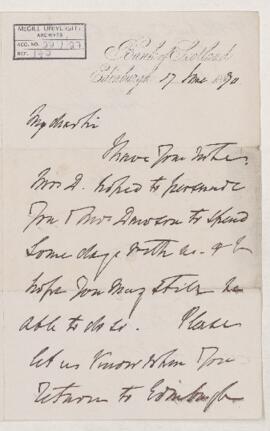 McGILL UNIVERSITY
ARCHIVES
ACC. NO.
REF.
Bank of Scotland
Edinburgh 17 1890
My dear Sir
I have your note.
Mrs D. hoped to persuade
you & Mrs Dawson to spend
some days with us. & I
hope you may still be
able to do so. Please
let us know when you
return to Edinburgh